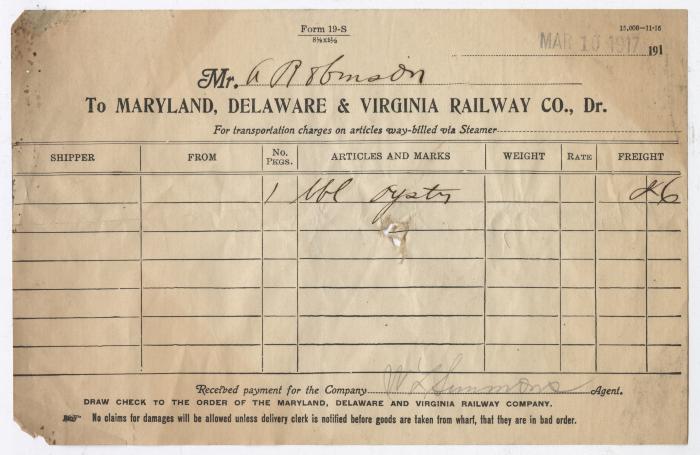 Form 19-S
8½x5½
15,000-11-16
MAR 10 1917. 191
Mr. A Robinson
To MARYLAND, DELAWARE & VIRGINIA RAILWAY CO., Dr.
For transportation charges on articles way-billed via Steamer
SHIPPER FROM No. PKGS. ARTICLES AND MARKS WEIGHT RATE FREIGHT
1 bbl oysters 26
Received payment for the Company W L Simmons Agent.
DRAW CHECK TO THE ORDER OF THE MARYLAND, DELAWARE AND VIRGINIA RAILWAY COMPANY.
No claims for damages will be allowed unless delivery clerk is notified before goods are taken from wharf, that they are in bad order.